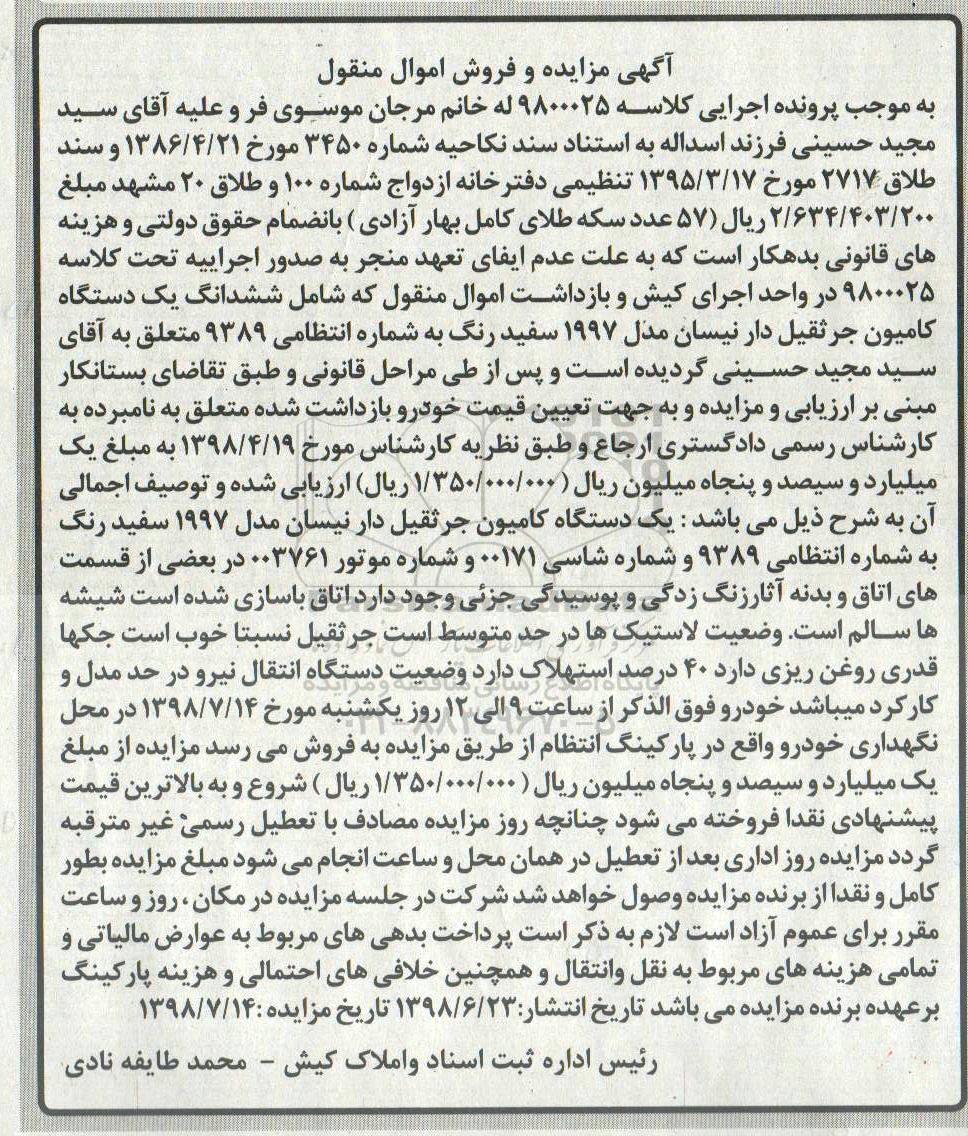 آگهی مزایده و فروش اموال منقول
به موجب پرونده اجرایی کلاسه ۹۸۰۰۰۲۵ له خانم مرجان موسوی فر و علیه آقای سید
مجید حسینی فرزند اسداله به استناد سند نکاحیه شماره ۳۴۵۰ مورخ ۱۳۸۶/۴/۲۱ و سند
طلاق ۲۷۱۷ مورخ ۱۳۹۵/۳/۱۷ تنظیمی دفترخانه ازدواج شماره ۱۰۰ و طلاق ۲۰ مشهد مبلغ
۲/۶۳۴/۴۰۳/۲۰۰ ریال (۵۷ عدد سکه طلای کامل بهار آزادی ) بانضمام حقوق دولتی و هزینه
های قانونی بدهکار است که به علت عدم ایفای تعهد منجر به صدور اجراییه تحت کلاسه
۹۸۰۰۰۲۵ در واحد اجرای کیش و بازداشت اموال منقول که شامل ششدانگ یک دستگاه
کامیون جرثقیل دار نیسان مدل ۱۹۹۷ سفید رنگ به شماره انتظامی ۹۳۸۹ متعلق به آقای
سید مجید حسینی گردیده است و پس از طی مراحل قانونی و طبق تقاضای بستانکار
مبنی بر ارزیابی و مزایده و به جهت تعیین قیمت خودرو بازداشت شده متعلق به نامبرده به
کارشناس رسمی دادگستری ارجاع و طبق نظریه کارشناس مورخ ۱۳۹۸/۴/۱۹ به مبلغ یک
میلیارد و سیصد و پنجاه میلیون ریال ( ۱/۳۵۰/۰۰۰/۰۰۰ ریال) ارزیابی شده و توصیف اجمالی
آن به شرح ذیل می باشد : یک دستگاه کامیون جرثقیل دار نیسان مدل ۱۹۹۷ سفید رنگ
به شماره انتظامی ۹۳۸۹ و شماره شاسی ۰۰۱۷۱ و شماره موتور ۰۰۳۷۶۱ در بعضی از قسمت
های اتاق و بدنه آثارزنگ زدگی و پوسیدگی جزئی وجود دارد اتاق باسازی شده است شیشه
ها سالم است. وضعیت لاستیک ها در حد متوسط است جرثقیل نسبتا خوب است جکها
قدری روغن ریزی دارد ۴۰ درصد استهلاک دارد وضعیت دستگاه انتقال نیرو در حد مدل و
کارکرد میباشد خودرو فوق الذکر از ساعت ۹ الی ۱۲ روز یکشنبه مورخ ۱۳۹۸/۷/۱۴ در محل
نگهداری خودرو واقع در پارکینگ انتظام از طریق مزایده به فروش می رسد مزایده از مبلغ
یک میلیارد و سیصد و پنجاه میلیون ریال ( ۱/۳۵۰/۰۰۰/۰۰۰ ریال ) شروع و به بالاترین قیمت
پیشنهادی نقدا فروخته می شود چنانچه روز مزایده مصادف با تعطیل رسمی غیر مترقبه
گردد مزایده روز اداری بعد از تعطیل در همان محل و ساعت انجام می شود مبلغ مزایده بطور
کامل و نقدا از برنده مزایده وصول خواهد شد شرکت در جلسه مزایده در مکان ، روز و ساعت
مقرر برای عموم آزاد است لازم به ذکر است پرداخت بدهی های مربوط به عوارض مالیاتی و
تمامی هزینه های مربوط به نقل وانتقال و همچنین خلافی های احتمالی و هزینه پارکینگ
برعهده برنده مزایده می باشد تاریخ انتشار:۱۳۹۸/۶/۲۳ تاریخ مزایده :۱۳۹۸/۷/۱۴
رئیس اداره ثبت اسناد واملاک کیش – محمد طایفه نادی